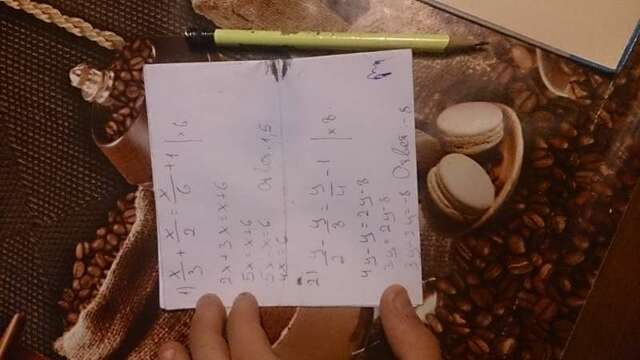 1) x/3 + x/2 = x/6 + 1 | ×6
2x + 3x = x + 6
5x = x + 6
5x - x = 6
4x = 6 Ответ: 1,5
2) y/2 - y/8 = y/4 - 1 | ×8
4y - y = 2y - 8
3y = 2y - 8
3y - 2y = -8 Ответ: -8